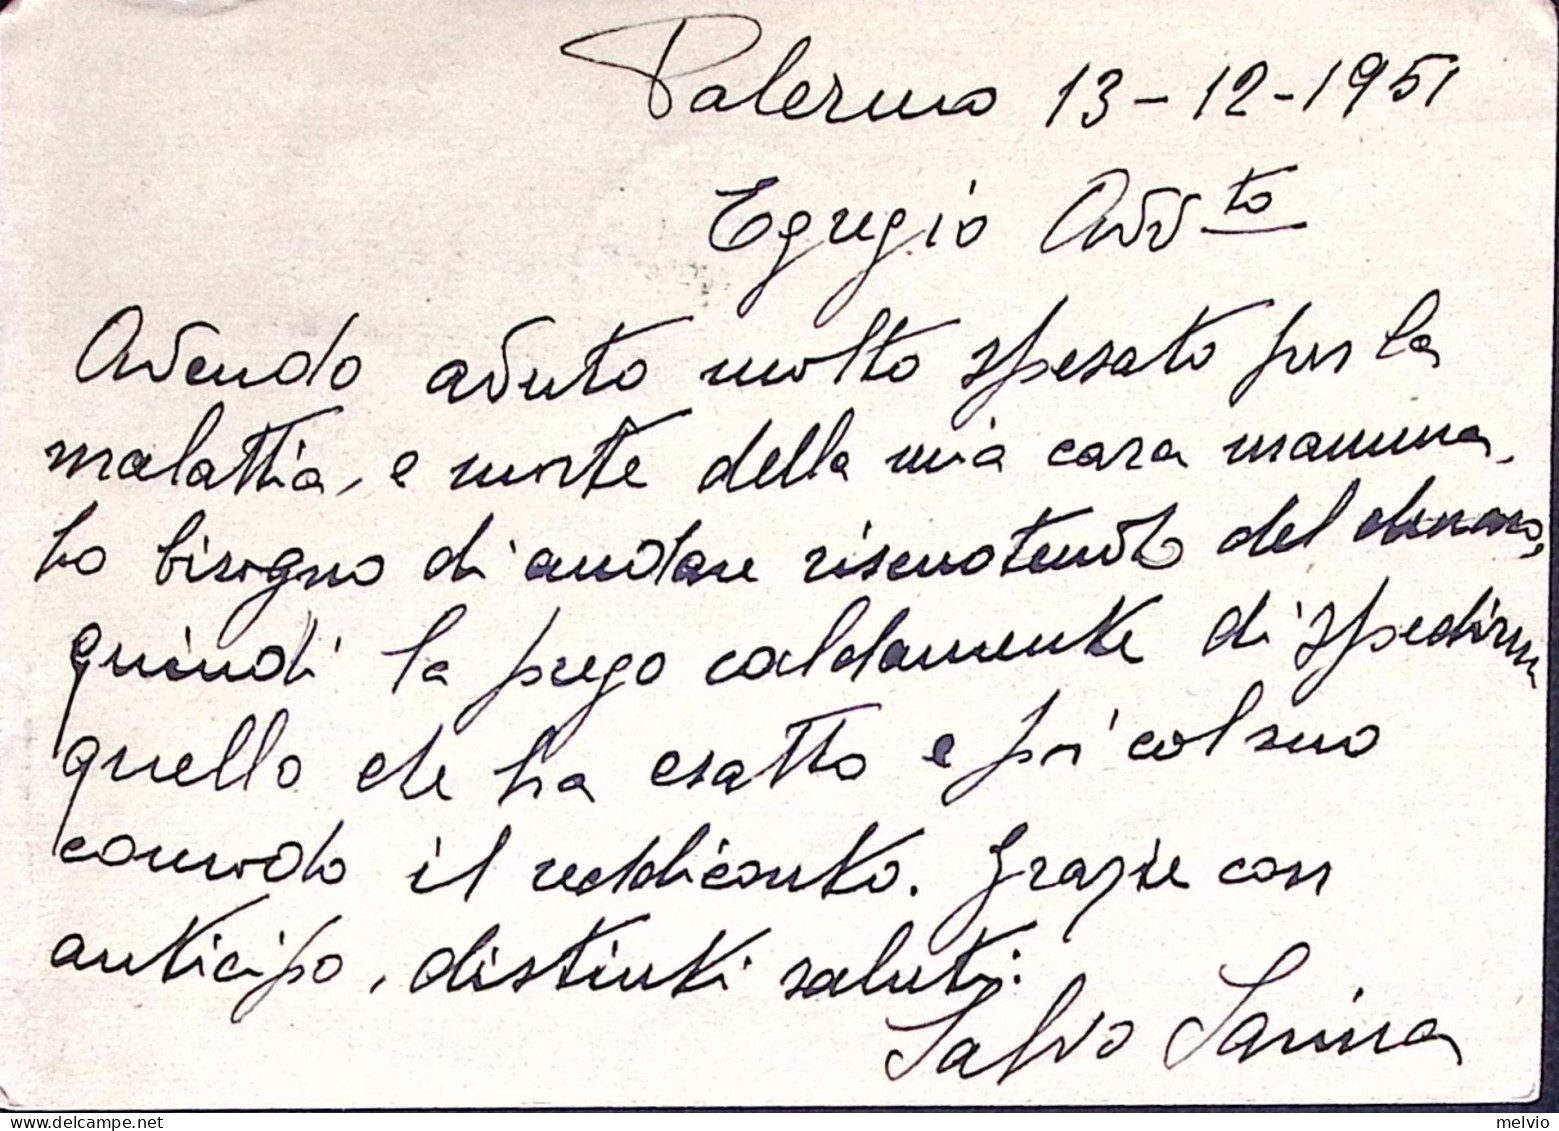 Palermo 13-12-1951
Egregio Avv to
Avendo avuto molto spesato per la
malattia, e morte della mia cara mamma,
ho bisogno di andare riscuotendo del denaro,
quindi la prego caldamente di spedirmi
quello che ha esatto e poi col suo
comodo il reddiconto. Grazie con
anticipo, distinti saluti.
Salvo Sarina
melvio